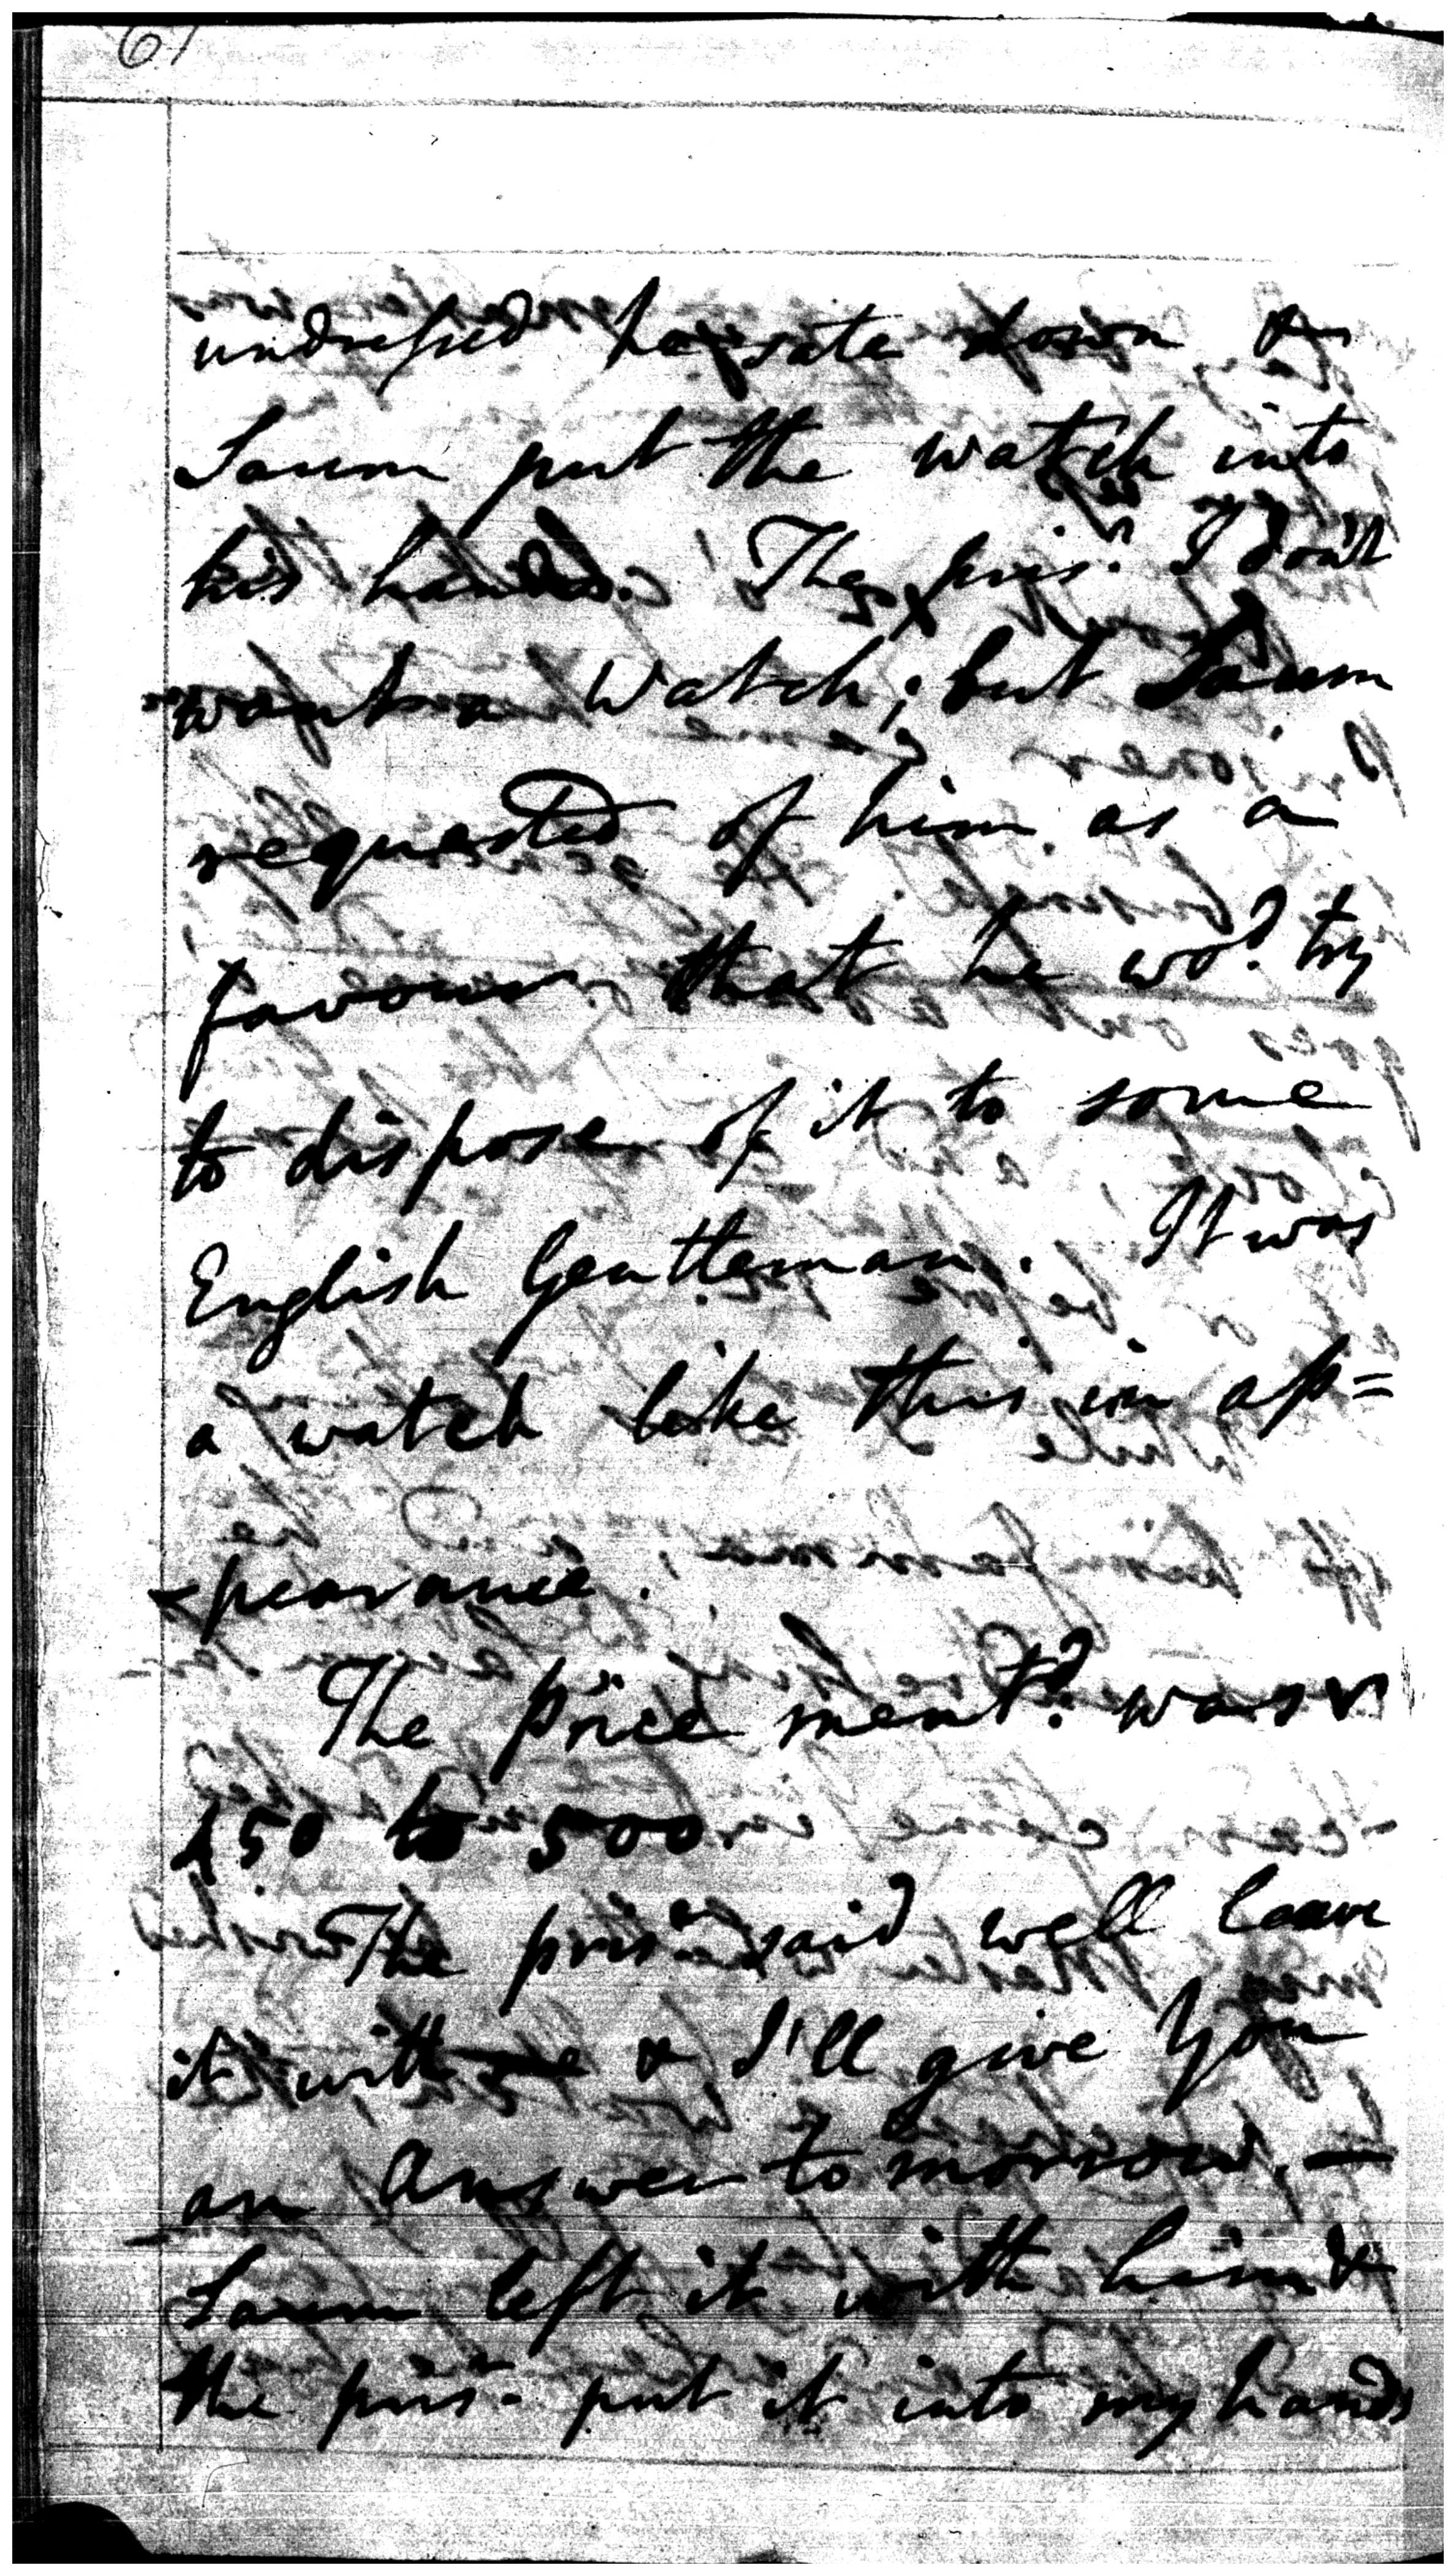 61
undressed he sate down &
Soum put the watch into
his hands. The prisr. I don't
want a Watch; but Soum
requested of him as a
favour that he wod. try
to dispose of it to some
English Gentleman. It was
a watch like this in ap=
-pearance.
The price mentd. was
450 to 500.
The prisr said well leave
it with me & I'll give You
an Answer to morrow. —
Soum left it with him &
the prisr. put it into my hands